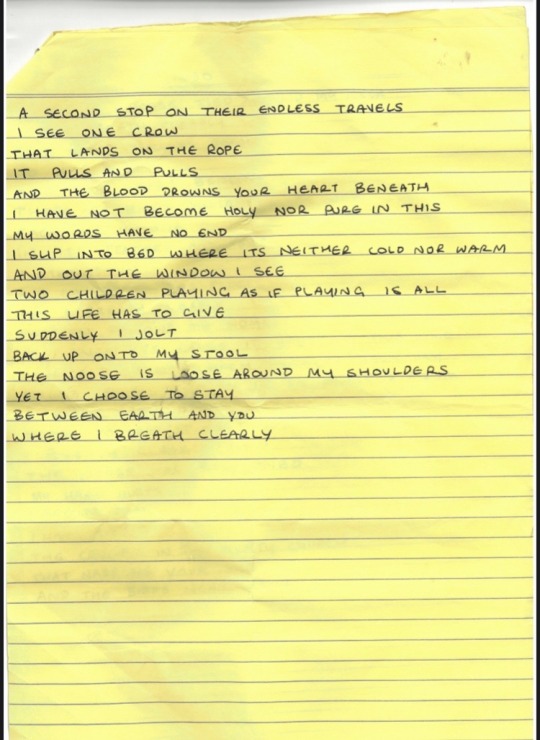 A SECOND STOP ON THEIR ENDLESS TRAVELS
I SEE ONE CROW
THAT LANDS ON THE ROPE
IT PULLS AND PULLS
AND THE BLOOD DROWNS YOUR HEART BENEATH
I HAVE NOT BECOME HOLY NOR PURE IN THIS
MY WORDS HAVE NO END
I SLIP INTO BED WHERE ITS NEITHER COLD NOR WARM
AND OUT THE WINDOW I SEE
TWO CHILDREN PLAYING AS IF PLAYING IS ALL
THIS LIFE HAS TO GIVE
SUDDENLY I JOLT
BACK UP ONTO MY STOOL
THE NOOSE IS LOOSE AROUND MY SHOULDERS
YET I CHOOSE TO STAY
BETWEEN EARTH AND YOU
WHERE I BREATH CLEARLY